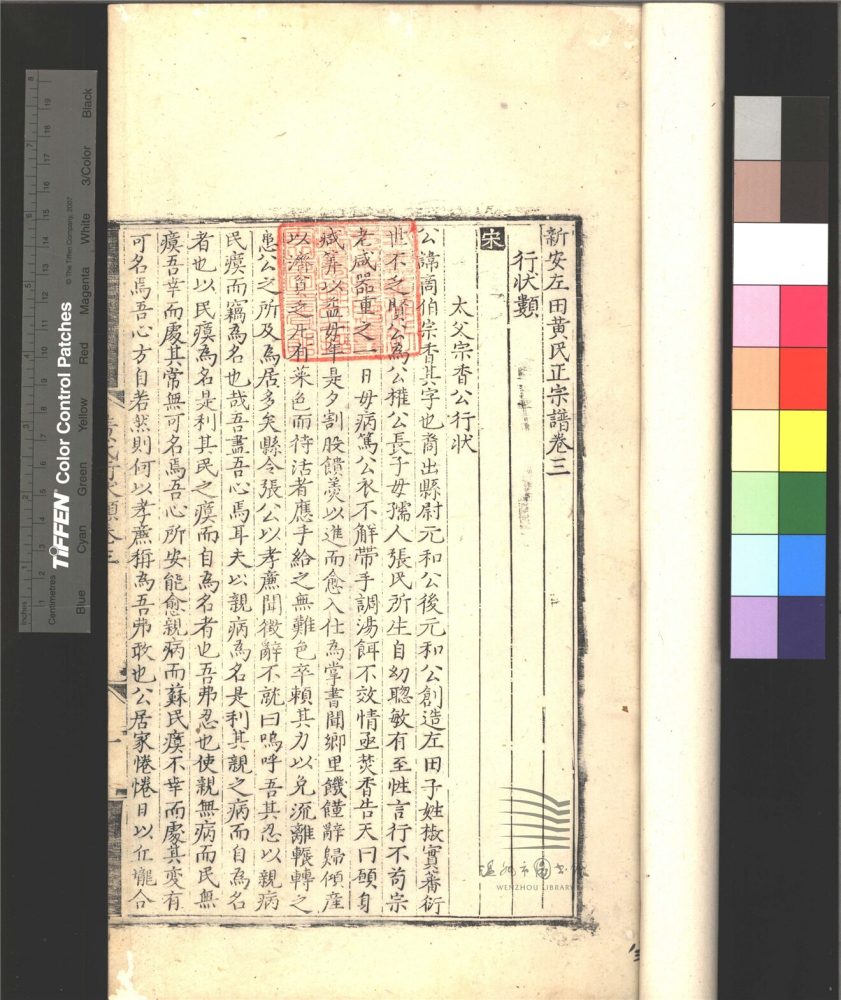 新安左田黃氏正宗譜卷三
行狀類
宋
太父宗香公行狀
公諱啇伯宗香其字也裔出縣尉元和公後元和公創造左田子姓椒實蕃衍
世不乏賢公為公權公長子母孺人張氏所生自幼聰敏有至性言行不苟宗
老咸器重之一日母病篤公衣不解帶手調湯餌不效情亟焚香告天曰願身
減筭以益母年是夕割股饋羹以進而愈入仕為掌書聞鄉里饑饉辭歸傾產
以濟貧乏凡有菜色而待活者應手給之無難色卒賴其力以免流離輾轉之
患公之所及為居多矣縣令張公以孝廉聞徵辭不就曰嗚呼吾其忍以親病
民瘼而竊為名也哉吾盡吾心焉耳夫以親病為名是利其親之病而自為名
者也以民瘼為名是利其民之瘼而自為名者也吾弗忍也使親無病而民無
瘼吾幸而處其常無可名焉吾心所安能愈親病而蘇民瘼不幸而處其變有
可名焉吾心方自若然則何以孝廉稱為吾弗敢也公居家惓惓日以丘壠合
黃氏行狀類卷三
一
溫州市图书馆
WENZHOU LIBRARY
Inches
Centimetres
TIFFEN Color Control Patches
© The Tiffen Company, 2007
Blue
Cyan
Green
Yellow
Red
Magenta
White
3/Color
Black